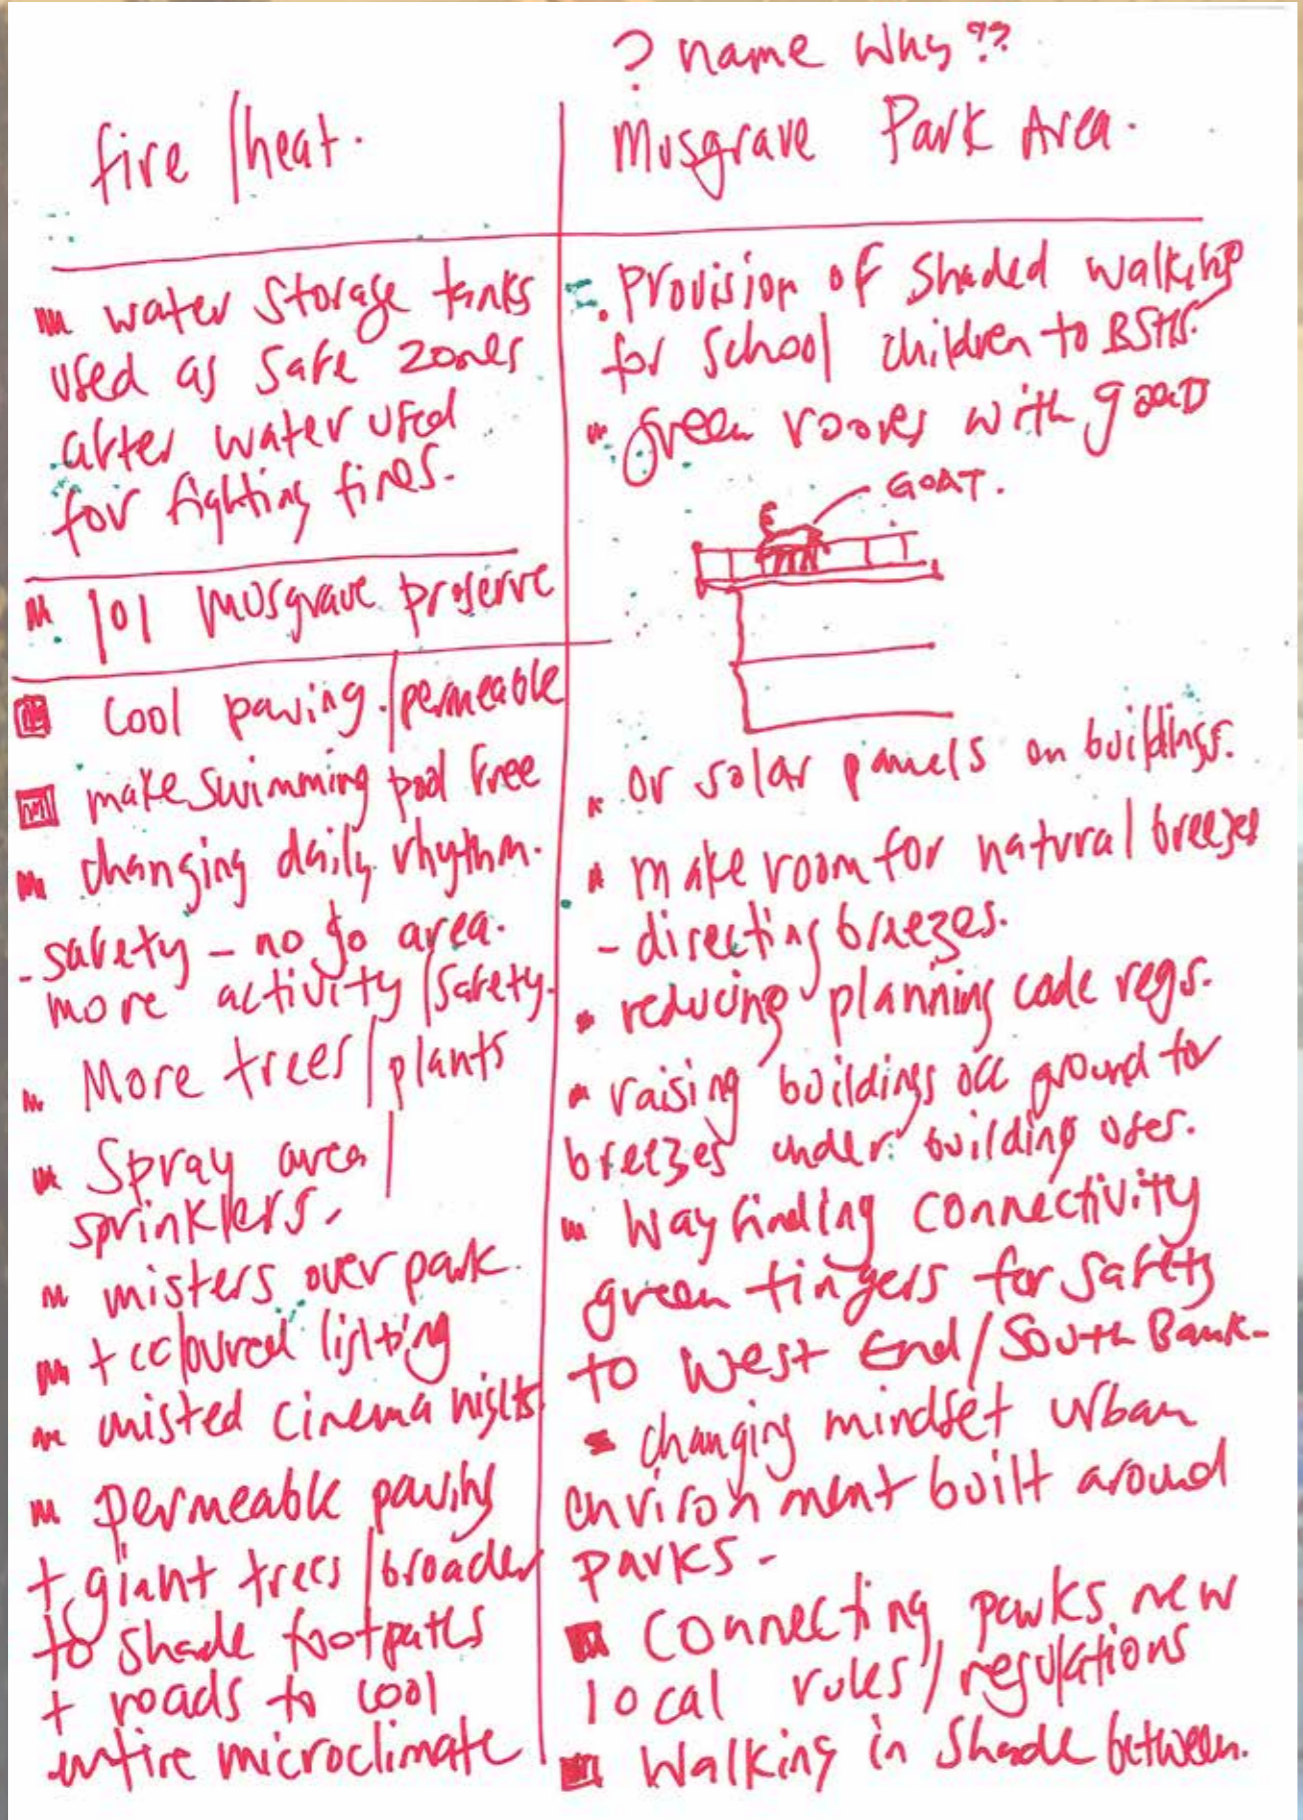 fire / heat.
water storage tanks
used as safe zones
after water used
for fighting fires.
101 musgrave preserve
cool paving / permeable
make swimming pool free
changing daily rhythm.
- safety - no go area.
more activity / safety.
More trees / plants
Spray area /
sprinklers.
misters over park.
+ coloured lighting
misted cinema nights
permeable paving
+ giant trees / broader
to shade footpaths
+ roads to cool
entire microclimate
? name why ??
Musgrave Park Area.
provision of shaded walking
for school children to BSHS.
green rooves with goat
GOAT.
or solar panels on buildings.
make room for natural breezes
- directing breezes.
reducing planning code regs.
raising buildings off ground for
breezes under building uses.
Wayfinding connectivity
green fingers for safety
to West End / South Bank -
changing mindset urban
environment built around
parks -
Connecting parks, new
local rules / regulations
Walking in shade between.